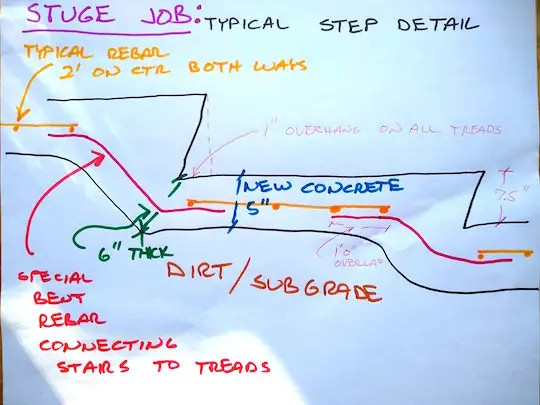 STUGE JOB: TYPICAL STEP DETAIL
TYPICAL REBAR
2' ON CTR BOTH WAYS
1" OVERHANG ON ALL TREADS
NEW CONCRETE
5"
7.5"
6" THICK
1'0"
OVERLAP
DIRT/SUBGRADE
SPECIAL
BENT
REBAR
CONNECTING
STAIRS TO TREADS